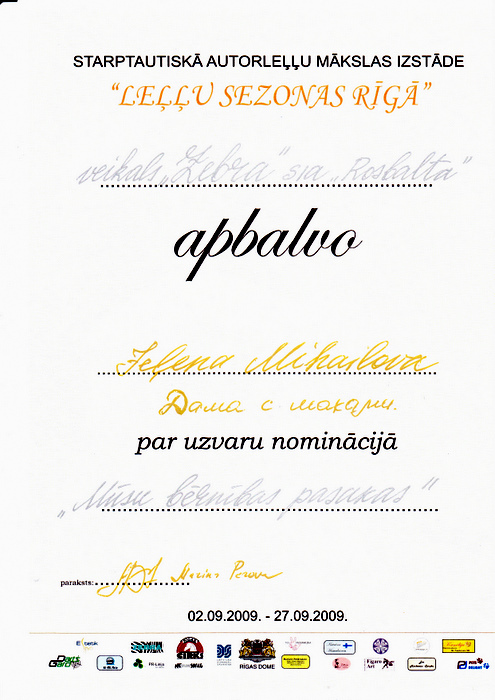 STARPTAUTISKĀ AUTORLEĻĻU MĀKSLAS IZSTĀDE
"LEĻĻU SEZONAS RĪGĀ"
veikals „Zebra" sia „Rosbalta"
apbalvo
Jeļena Mihailova
Дама с
par uzvaru nominācijā
„Mūsu bērnības pasakas"
paraksts:
02.09.2009. - 27.09.2009.
RĪGAS DOME